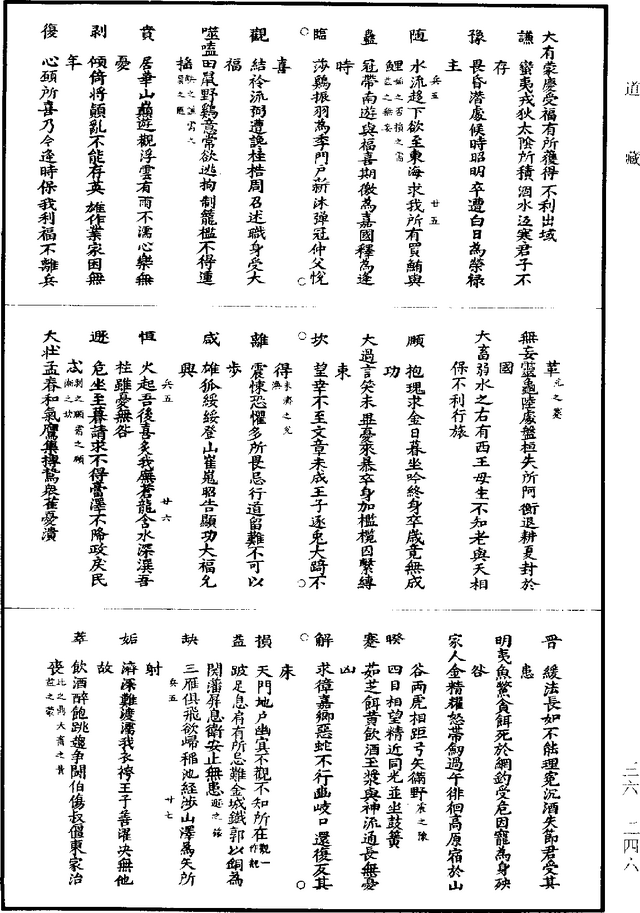 道藏
大有蒙慶受福有所獲得不利出域
謙 蠻夷戎狄太陰所積涸水沍寒君子不
存
豫 畏昏潛處候時昭明卒遭白日為榮祿
主
兵五 廿五
隨 水流趍下欲至東海求我所有買鮪與
鯉
蠱 冠帶南遊與福喜期徼為嘉國釋為逢
時
臨 莎鷄振羽為季門户新沐彈冠仲父悅
喜
觀 結衿流粥遭讒桎梏周召述職身受大
福
噬嗑田鼠野鷄意常欲逃拘制籠檻不得運
摇
賁 居華山巔遊觀浮雲有雨不濡心樂無
憂
剥 傾倚將顛亂不能存英雄作業家困無
年
復 心頤所喜乃今逢時保我利福不離兵
革
無妄靈龜陸處盤桓失所阿衡退耕夏封於
國
大畜弱水之右有西王母生不知老與天相
保不利行旅
頤 抱瑰求金日暮坐吟終身卒歲竟無成
功
大過言笑未畢憂來暴卒身加檻欖囚繫縛
束
坎 望幸不至文章未成王子逐兎大踦不
得
離 震悚恐懼多所畏忌行道留難不可以
步
咸 雄狐綏綏登山崔嵬昭告顯功大福允
興
兵五 廿六
恒 火起吾後喜炙我廡蒼龍含水深潠吾
柱雖憂無咎
遯 危坐至暮請求不得膏澤不降政戾民
忒
大壯孟春和氣鷹隼搏鷙衆雀憂潰
晋 緩法長如不能理寃沉酒失節君受其
患
明夷魚鱉貪餌死於網釣受危因寵為身殃
咎
家人金精耀怒帶劒過午徘徊高原宿於山
谷兩虎相距弓矢滿野
睽 四目相望精近同光並坐鼓簧
蹇 茹芝餌黄飲酒玉漿與神流通長無憂
凶
解 求獐嘉鄉惡蛇不行幽岐口還復反其
床
損 天門地户幽冥不覩不知所在觀一作覩
益 跛足息肩有所忌難金城鐵郭以銅為
関藩屏息衛安止無患
兵五 廿七
缺 三雁俱飛欲歸稻池經涉山澤為矢所
射
姤 濟深難渡濡我衣袴王子善濯决無他
故
萃 飲酒醉飽跳躍争鬬伯傷叔僵東家治
喪
三六 二四六